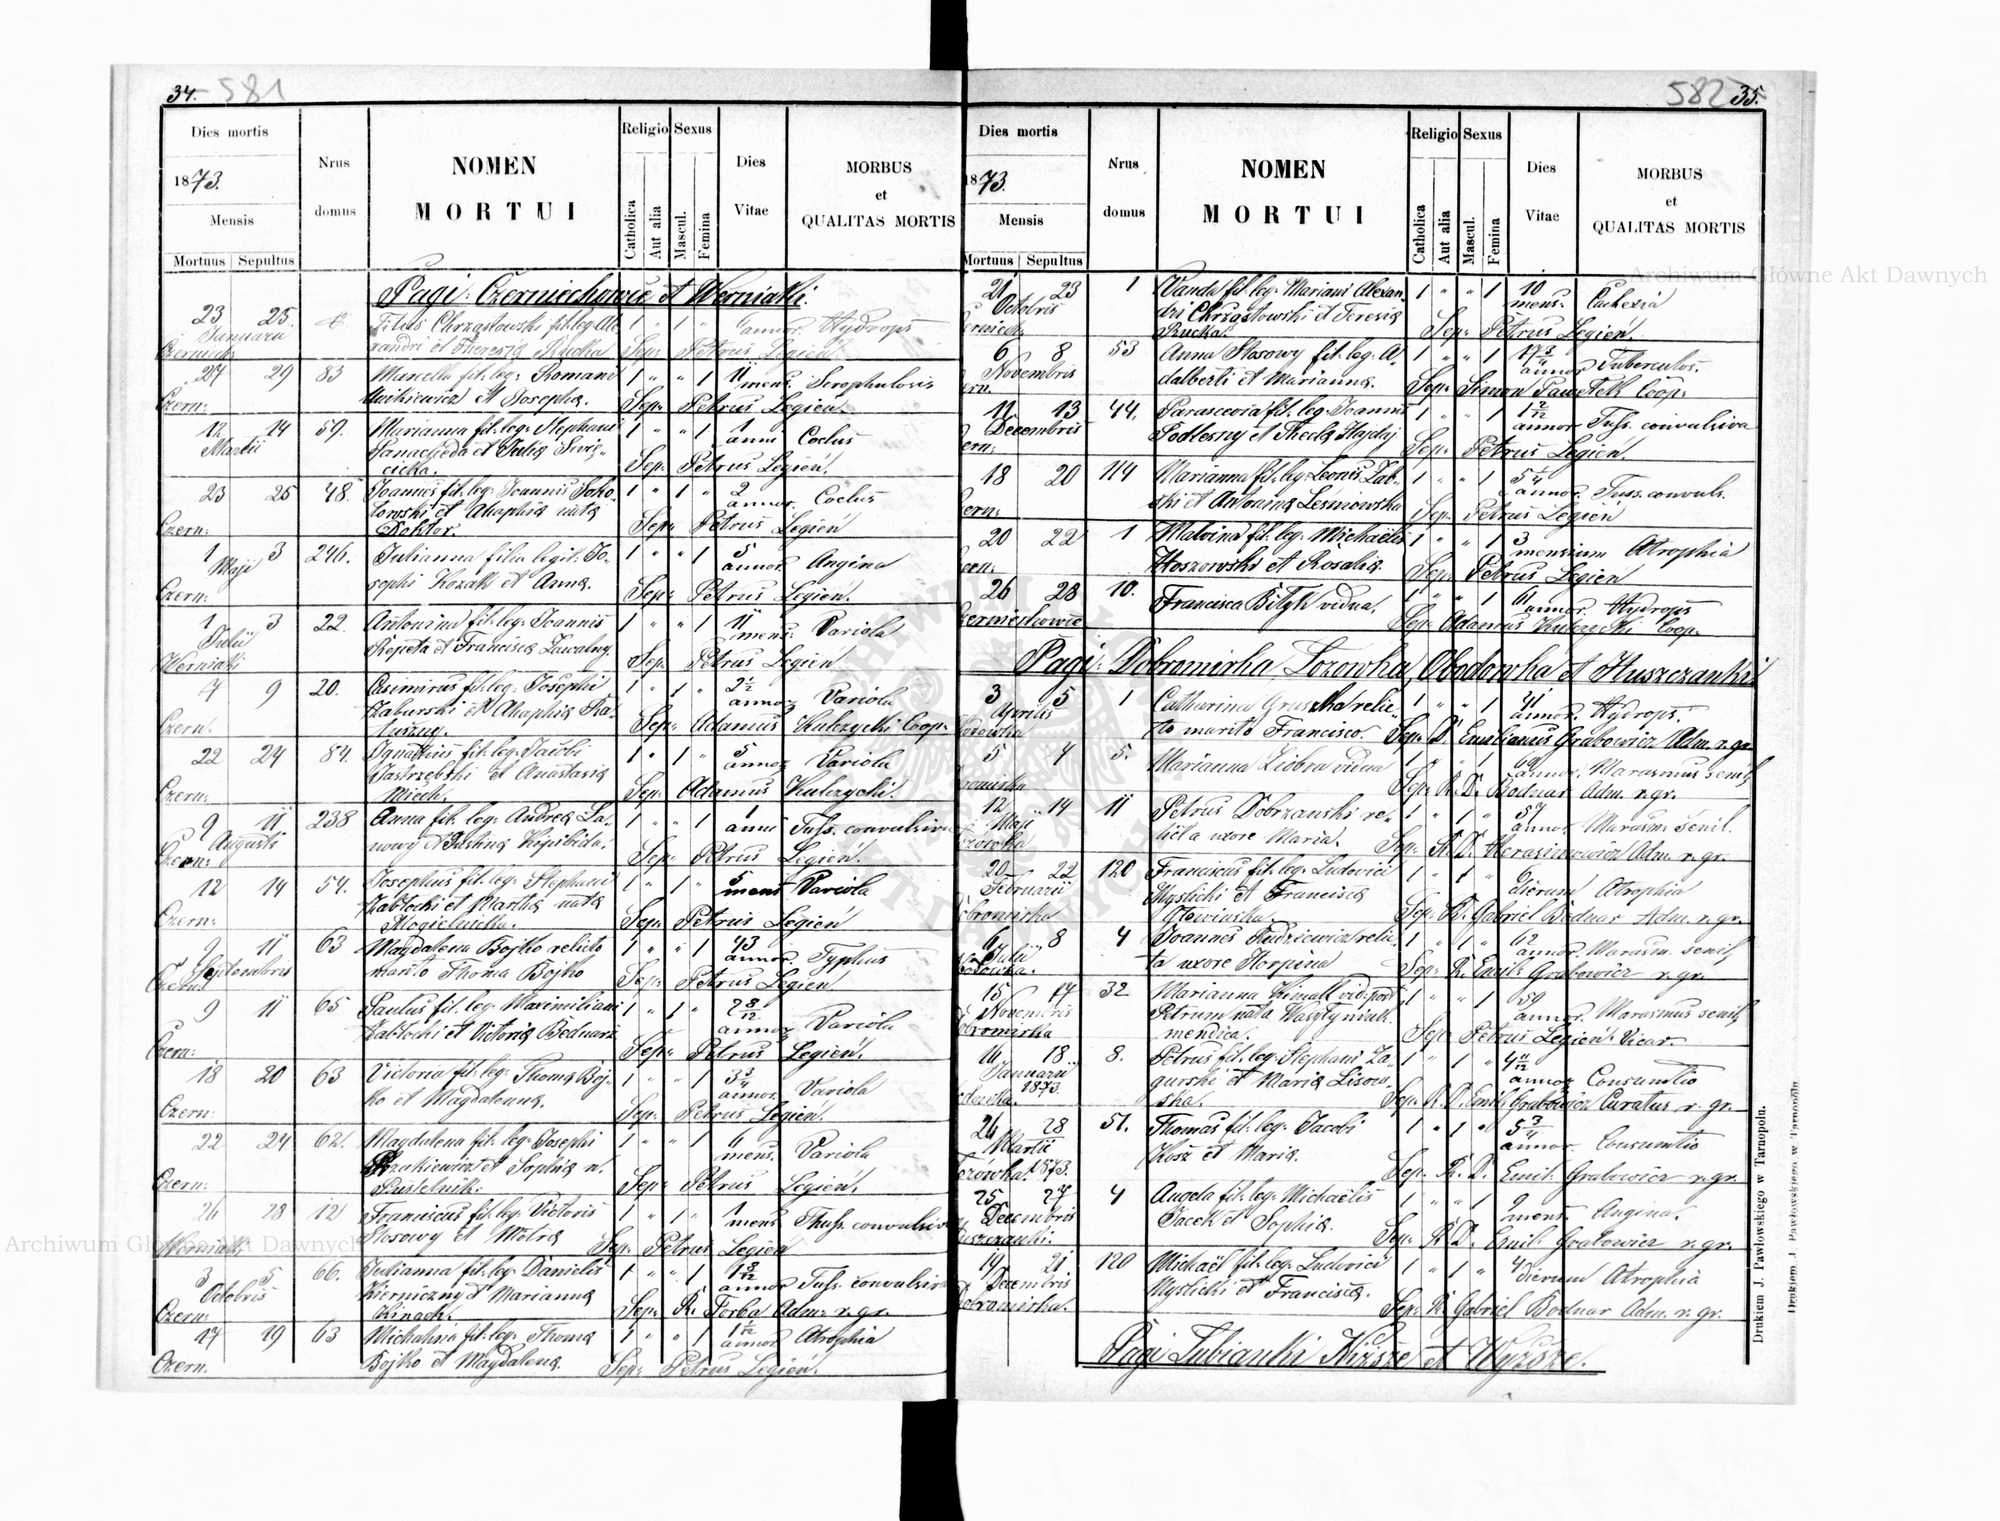 34. 581
Dies mortis
1873.
Mensis
Mortuus Sepultus
Nrus domus
NOMEN
MORTUI
Religio
Catholica
Aut alia
Sexus
Mascul.
Femina
Dies
Vitae
MORBUS
et
QUALITAS MORTIS
Pagi: Czerniechowce et Werniaki.
23 25. Titus Chrząstowski fil. leg. Ale 1 " 1 " annor. Hydrops
Januarii xandri et Theresia Rucka Sep: Petrus Legień.
Czerniech:
27 29 83 Marcella fil. leg: Romani 1 " " 1 11 mens. Scrophulosis
Czern: et Josepha. Sep: Petrus Legień.
12 14 59. Marianna fil. leg: Stephani 1 " " 1 1 anni Coclus
Martii et Julia
Sep: Petrus Legień.
23 25 48. Joannes fil. leg: Joannis Soko- 1 " 1 " 2 annor. Coclus
łowski et Ahaphia nata
Czern: Doktor. Sep: Petrus Legień
1 3 246. Julianna filia legit: Jo- 1 " " 1 5 annor. Angina
Maji sephi Kozak et Anna.
Czern: Sep: Petrus Legień.
1 3 22. Antonina fil. leg: Joannis 1 " " 1 11 mens: Variola
Julii Rejeta et Francisca Zawalny
Werniaki Sep: Petrus Legień
7 9 20. Casimirus fil. leg: Josephi 1 " 1 " 2 1/2 annor Variola
Zaburski et Ahaphia Ra-
Czern. Sep: Adamus Kulczycki Coop.
22 24 84. Ignatius fil. leg: Jacobi 1 " 1 " 5 annor Variola
Jastrzębski et Anastasia
Czern: Miech. Sep: Adamus Kulczycki.
9 11 238 Anna fil. leg: Andrea La- 1 " " 1 1 anni Tuss. convulsiva
Augusti nowy et Justina
Czern: Sep: Petrus Legień.
12 14 54. Josephus fil. leg: Stephani 1 " 1 " 5 mens Variola
Zabłocki et Martha nata
Czern: Mogielnicka. Sep: Petrus Legień
9 11 63 Magdalena Bojko relicto 1 " " 1 43 annor. Typhus
Septembris marito Thoma Bojko
Czern: Sep: Petrus Legień
9 11 65 Paulus fil. leg: Maximiliani 1 " 1 " 2 8/12 annor Variola
Zabłocki et Victoria Bednarz
Czern: Sep: Petrus Legień.
18 20 63 Victoria fil. leg: Thoma Boj- 1 " " 1 3 3/4 annor. Variola
ko et Magdalena.
Czern: Sep: Petrus Legień.
22 24 62. Magdalena fil. leg: Josephi 1 " " 1 6 mens. Variola
et Sophia n.
Czern: Sep: Petrus Legień.
26 28 121 Franciscus fil. leg: Victoris 1 " 1 " 1 mens Thuss. convulsiva
Stosowy et Motra
Werniaki Sep: Petrus Legień
3 5 66. Julianna fil. leg: Danielis 1 " " 1 1 8/12 annor Tuss. convulsiva
Octobris et Marianna
Czern: Kinach. Sep: R. Torba Adm: r. gr.
17 19 63 Michalina fil. leg: Thoma 1 " " 1 1 1/12 annor. Atrophia
Czern. Bojko et Magdalena. Sep: Petrus Legień.
582 35.
Dies mortis
1873.
Mensis
Mortuus Sepultus
Nrus domus
NOMEN
MORTUI
Religio
Catholica
Aut alia
Sexus
Mascul.
Femina
Dies
Vitae
MORBUS
et
QUALITAS MORTIS
21 23 1 Vanda fil. leg: Mariani Alexan- 1 " " 1 10 mens: Cachexia
Octobris dri Chrząstowski et Teresia
Rucka. Sep: Petrus Legień.
6 8 53 Anna Stosowy fil. leg: A- 1 " " 1 17 3/4 annor Tuberculos.
Novembris dalberti et Marianna. Sep: Simon Coop:
11 13 44. Parascevia fil. leg: Joannis 1 " " 1 1 2/12 annor Tuss. convulsiva
Decembris Podlesny et Thecla Hajdaj
Sep: Petrus Legień.
18 20 114 Marianna fil. leg: Leonis Zab- 1 " " 1 5 1/4 annor. Tuss. convuls.
ski et Antonina Leśniowska
Sep: Petrus Legień
20 22 1 Malvina fil. leg: Michaelis 1 " " 1 3 mensium Atrophia
Hoszowski et Rosalia. Sep: Petrus Legień
26 28 10. Francisca Bityk vidua. 1 " " 1 61 annor. Hydrops
Czerniechowce Sep: Adamus Kulczycki Coop.
Pagi: Dobromirka, Łozowka, Obodowka et Huszczanki
3 5 1 Catharina Gruszka relic- 1 " " 1 41 annor. Hydrops.
Aprilis to marito Francisco. Sep: D. Emilianus Grabowicz Adm. r. gr.
5 7 5. Marianna Ziobra vidua 1 " " 1 69 annor. Marasmus senil.
Sep: R. D. Bodnar Adm. r. gr.
12 14 11 Petrus Dobrzanski re- 1 " 1 " 57 annor Marasm. senil.
Maji licta uxore Maria. Sep: R. D. Herasimowicz Adm. r. gr.
20 22 120 Franciscus fil. leg: Ludovici 1 " 1 " dierum Atrophia
Februarii Myslicki et Francisca
Sep: R. Gabriel Bodnar Adm. r. gr.
6 8 4 Joannes Kudziewicz relic- 1 " 1 " 62 annor. Marasm. senil.
Julii ta uxore Horpina Sep: R. Emil: Grabowicz r. gr.
15 17 32 Marianna vid: post 1 " " 1 59 annor. Marasmus senil.
Novembris Petrum nata
mendica. Sep: Petrus Legień Vicar.
16 18 8. Petrus fil. leg: Stephani Za- 1 " 1 " 4 11/12 annor Consumtio
Januarii gurski et Maria Lisow-
1873. ska. Sep: R. D. Emil: Grabowicz Curatus r. gr.
26 28 51. Thomas fil. leg: Jacobi 1 " 1 " 5 3/4 annor. Consumtio
Martii Kosz et Maria.
Łozówka. 1873. Sep: R. D. Emil: Grabowicz r. gr.
25 27 4 Angela fil. leg: Michaelis 1 " " 1 9 mens. Angina.
Decembris Jacek et Sophia.
Huszczanki. Sep: R. D. Emil: Grabowicz r. gr.
19 21 120 Michaël fil. leg: Ludovici 1 " 1 " 4 dierum Atrophia
Decembris Myslicki et Francisca.
Dobromirka. Sep: R. Gabriel Bodnar Adm. r. gr.
Pagi Łubianki Niższe et Wyższe.
Drukiem J. Pawłowskiego w Tarnopolu.
Drukiem J. Pawłowskiego w Tarnopolu
Archiwum Główne Akt Dawnych
Archiwum Główne Akt Dawnych